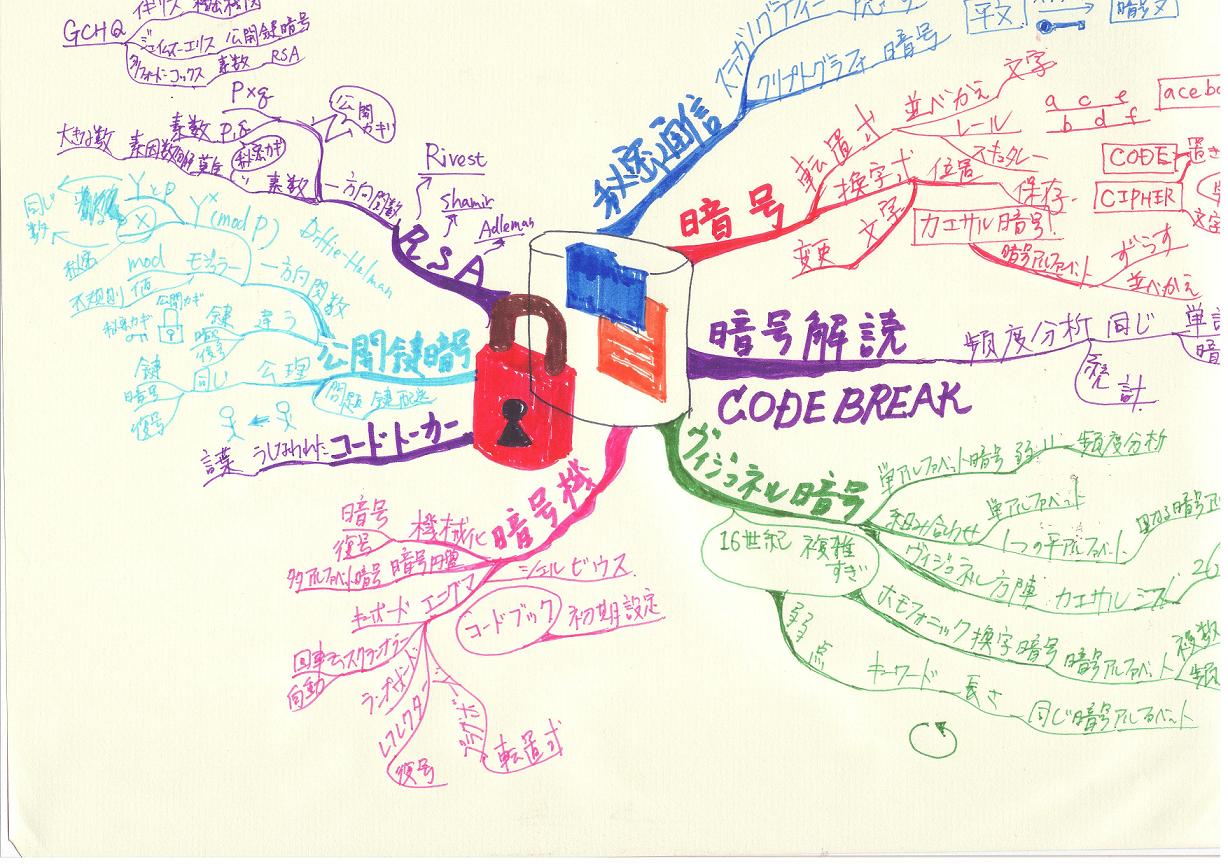 GCHQ
公開鍵暗号
素数
RSA
P×q
公開
カギ
素数 P,q
大きな数
素因数分解
秘密カギ
素数
一方向関数
Rivest
Shamir
Adleman
RSA
同じ
数
Y>P
X
Y^x (mod P)
Diffie-Helman
秘密
mod
モジュラー
一方向関数
不規則
値
公開カギ
秘密カギ
鍵
違う
暗号
復号
公開鍵暗号
鍵
暗号
復号
同じ
公理
問題
鍵配送
コードトーカー
うしなわれた
言葉
秘密通信
ステガノグラフィー
クリプトグラフィ
暗号
平文
暗号文
暗号
転置式
並べかえ
文字
レール
スキュタレー
a c e
b d f
換字式
位置
保存
文字
変更
カエサル暗号
暗号アルファベット
ずらす
並べかえ
CODE
置き
CIPHER
文字
暗号解読
CODE BREAK
頻度分析
同じ
統計
ヴィジュネル暗号
単アルファベット暗号
弱い
頻度分析
組み合わせ
単アルファベット
1つの平アルファベット
ヴィジュネル方陣
カエサルシフト
26
16世紀
複雑
すぎ
ホモフォニック
換字暗号
暗号アルファベット
複数
弱点
キーワード
長さ
同じ暗号アルファベット
暗号機
機械化
暗号
復号
暗号円盤
多アルファベット暗号
シェルビウス
エニグマ
キーボード
コードブック
初期設定
回転
スクランブラー
自動
ランプボード
リフレクター
復号
プラグボード
転置式